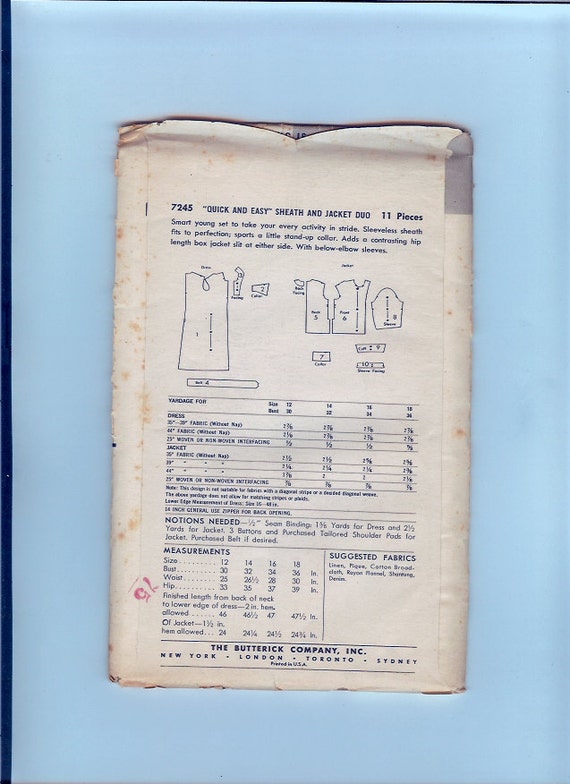 7245 "QUICK AND EASY" SHEATH AND JACKET DUO 11 Pieces
Smart young set to take your every activity in stride. Sleeveless sheath
fits to perfection; sports a little stand-up collar. Adds a contrasting hip
length box jacket slit at either side. With below-elbow sleeves.
Dress
Jacket
1
3
Facing
2
Collar
Back
Facing
Back
5
Front
6
8
Sleeve
7
Collar
Cuff 9
10
Sleeve Facing
Belt 4
YARDAGE FOR Size 12 14 16 18
Bust 30 32 34 36
DRESS
35"-39" FABRIC (Without Nap) 2⅞ 2⅞ 2⅞ 2⅞
44" FABRIC (Without Nap)
25" WOVEN OR NON-WOVEN INTERFACING ½ ½ ½ ⅝
JACKET
35" FABRIC (Without Nap)
39" " " "
44" " " "
25" WOVEN OR NON-WOVEN INTERFACING ⅞ ⅞ ⅞ ⅞
Note: This design is not suitable for fabrics with a diagonal stripe or a decided diagonal weave.
The above yardage does not allow for matching stripes or plaids.
Lower Edge Measurement of Dress: Size 16—40 in.
14 INCH GENERAL USE ZIPPER FOR BACK OPENING.
NOTIONS NEEDED—½" Seam Binding: 1⅜ Yards for Dress and 2½
Yards for Jacket. 3 Buttons and Purchased Tailored Shoulder Pads for
Jacket. Purchased Belt if desired.
MEASUREMENTS
Size 12 14 16 18
Bust 30 32 34 36 In.
Waist 25 26½ 28 30 In.
Hip 33 35 37 39 In.
Finished length from back of neck
to lower edge of dress—2 in. hem
allowed 46 46½ 47 47½ In.
Of Jacket—1½ in.
hem allowed 24 24¼ 24½ 24¾ In.
SUGGESTED FABRICS
Linen, Pique, Cotton Broad-
cloth, Rayon Flannel, Shantung,
Denim.
THE BUTTERICK COMPANY, INC.
NEW YORK • LONDON • TORONTO • SYDNEY
Printed in U.S.A.